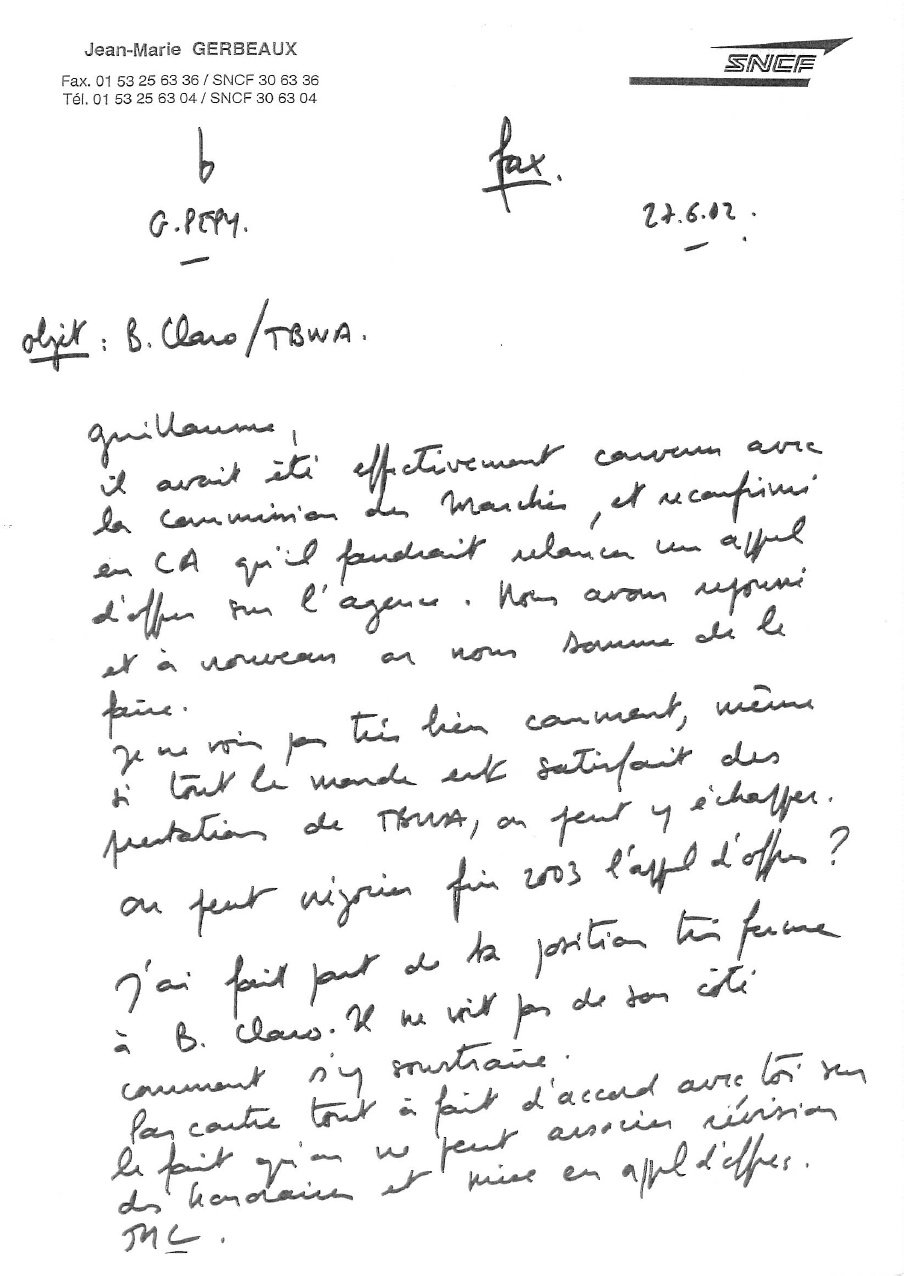 Jean-Marie GERBEAUX
SNCF
Fax. 01 53 25 63 36 / SNCF 30 63 36
Tél. 01 53 25 63 04 / SNCF 30 63 04
fax.
G. PEPY.
27.6.02.
objet : B. Claro / TBWA.
Guillaume,
il avait été effectivement convenu avec
la Commission des Marchés, et reconfirmé
en CA qu'il faudrait relancer un appel
d'offres sur l'agence. Nous avons repoussé
et à nouveau on nous somme de le
faire.
Je ne vois pas très bien comment, même
si tout le monde est satisfait des
prestations de TBWA, on peut y échapper.
on peut négocier fin 2003 l'appel d'offres ?
J'ai fait part de ta position très ferme
à B. Claro. Il ne voit pas de son côté
comment s'y soustraire.
Par contre tout à fait d'accord avec toi sur
le fait qu'on ne peut associer révision
des honoraires et mise en appel d'offres.